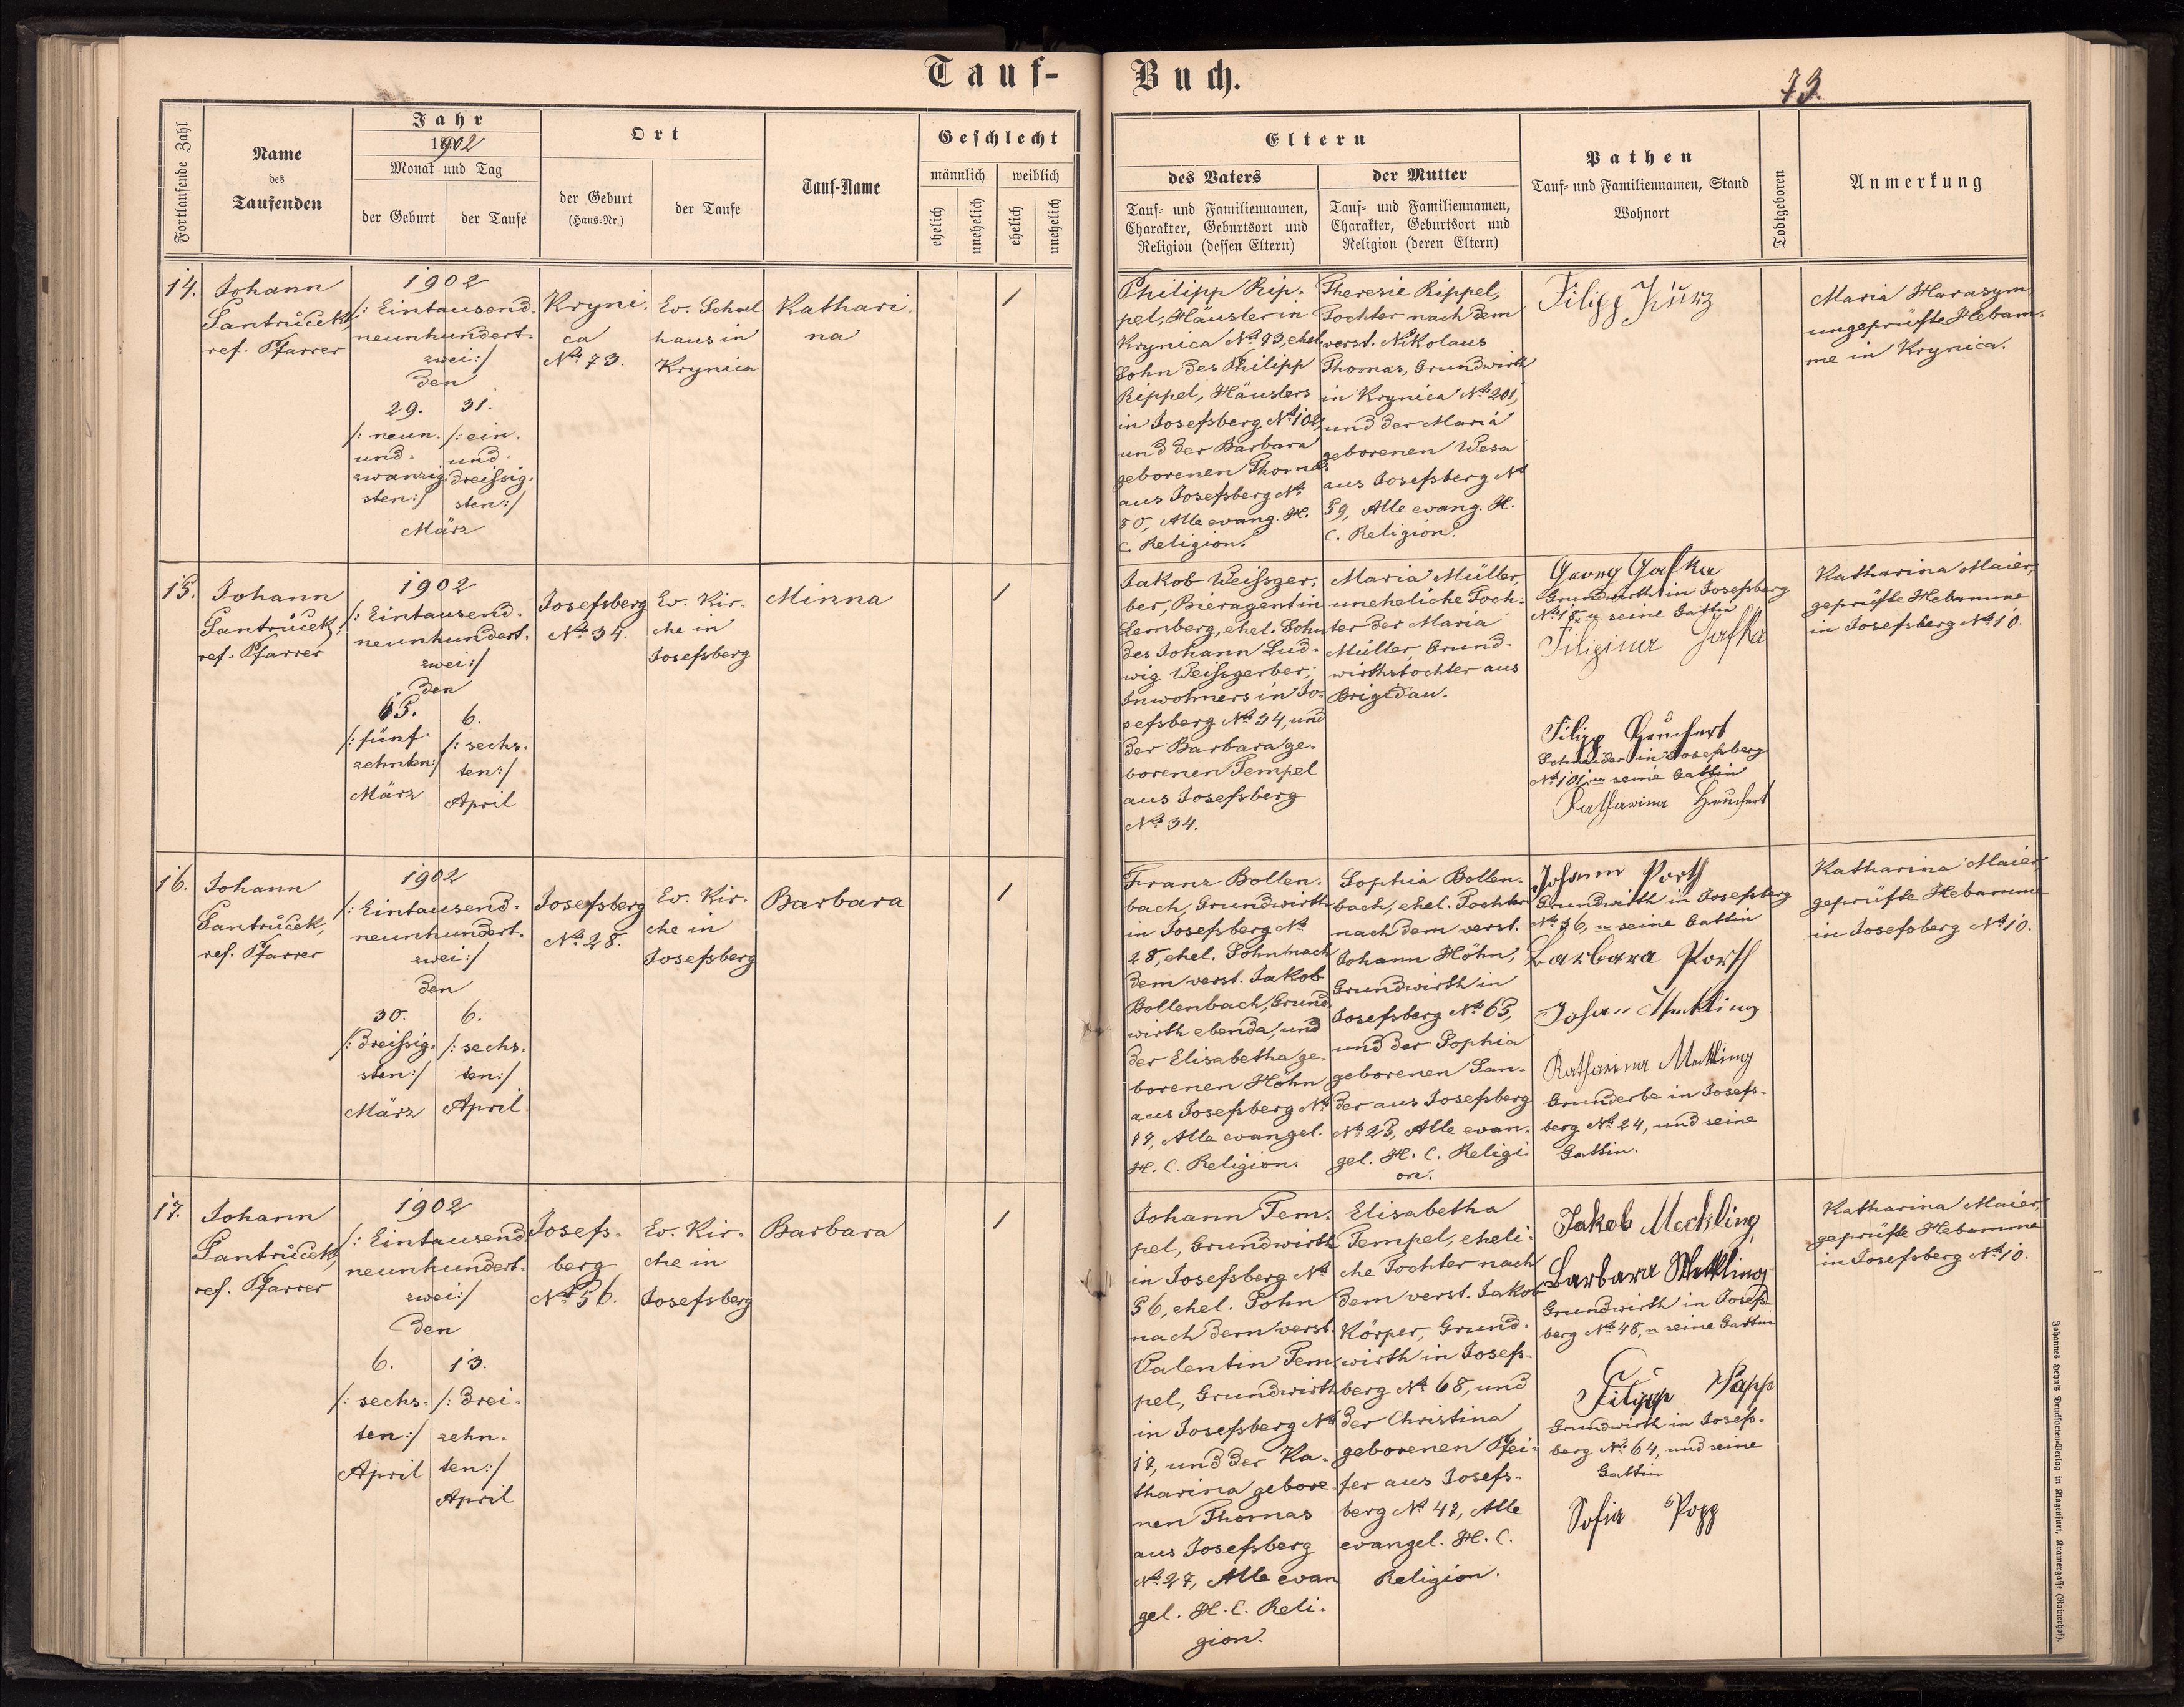 Tauf-
Buch.
73.
Fortlaufende Zahl
Name
des
Taufenden
Jahr
1902
Monat und Tag
der Geburt
der Taufe
Ort
der Geburt
(Haus-Nr.)
der Taufe
Tauf-Name
Geschlecht
männlich
weiblich
ehelich
unehelich
ehelich
unehelich
Eltern
des Vaters
Tauf- und Familiennamen,
Charakter, Geburtsort und
Religion (dessen Eltern)
der Mutter
Tauf- und Familiennamen,
Charakter, Geburtsort und
Religion (deren Eltern)
Pathen
Tauf- und Familiennamen, Stand
Wohnort
Todtgeboren
Anmerkung
14.
Johann
Santrůček,
ref. Pfarrer
1902
/: Eintausend-
neunhundert-
zwei :/
den
29.
/: neun-
und-
zwanzig-
sten :/
31.
/: ein-
und-
dreissig-
sten :/
März
Kryni-
ca
No. 73.
Ev. Schul
haus in
Krynica
Kathari-
na
1
Philipp Rip-
pel, Häusler in
Krynica No. 73, ehel.
Sohn des Philipp
Rippel, Häuslers
in Josefsberg No. 102,
und der Barbara
geborenen Thomas
aus Josefsberg No.
80, Alle evang. H.
C. Religion.
Theresie Rippel,
Tochter nach dem
verst. Nikolaus
Thomas, Grundwirth
in Krynica No. 201,
und der Maria
geborenen Wesa
aus Josefsberg No.
59, Alle evang. H.
C. Religion.
Filipp Kurz
Maria Harasym,
ungeprüfte Hebam-
me in Krynica.
15.
Johann
Santrůček,
ref. Pfarrer
1902
/: Eintausend-
neunhundert-
zwei :/
den
15.
/: fünf-
zehnten :/
März
6.
/: sechs-
ten :/
April
Josefsberg
No. 34.
Ev. Kir-
che in
Josefsberg
Minna
1
Jakob Weissger-
ber, Bieragent in
Lemberg, ehel. Sohn
des Johann Lud-
wig Weissgerber,
Inwohners in Jo-
sefsberg No. 34, und
der Barbara ge-
borenen Tempel
aus Josefsberg
No. 34.
Maria Müller,
uneheliche Toch-
ter der Maria
Müller, Grund-
wirthstochter aus
Brigidau.
Georg Gafka
Grundwirth in Josefsberg
No. 18, u. seine Gattin
Filipina Gafka
Filipp Heuchert
Schneider in Josefsberg
No. 101, u. seine Gattin
Katharina Heuchert
Katharina Maier,
geprüfte Hebamme
in Josefsberg No. 10.
16.
Johann
Santrůček,
ref. Pfarrer
1902
/: Eintausend-
neunhundert-
zwei :/
den
30.
/: dreissig-
sten :/
März
6.
/: sechs-
ten :/
April
Josefsberg
No. 28.
Ev. Kir-
che in
Josefsberg
Barbara
1
Franz Bollen-
bach, Grundwirth
in Josefsberg No.
28, ehel. Sohn nach
dem verst. Jakob
Bollenbach, Grund-
wirth ebenda, und
der Elisabetha ge-
borenen Höhn
aus Josefsberg No.
17, Alle evangel.
H. C. Religion.
Sophia Bollen-
bach, ehel. Tochter
nach dem verst.
Johann Höhn,
Grundwirth in
Josefsberg No. 65,
und der Sophia
geborenen San-
der aus Josefsberg
No. 25, Alle evan-
gel. H. C. Religi-
on.
Johann Porth
Grundwirth in Josefsberg
No. 36, u. seine Gattin
Barbara Porth
Johann Meckling
Katharina Meckling
Grunderbe in Josefs-
berg No. 24, und seine
Gattin.
Katharina Maier,
geprüfte Hebamme
in Josefsberg No. 10.
17.
Johann
Santrůček,
ref. Pfarrer
1902
/: Eintausend-
neunhundert-
zwei :/
den
6.
/: sechs-
ten :/
April
13.
/: drei-
zehn-
ten :/
April
Josefs-
berg
No. 56.
Ev. Kir-
che in
Josefsberg
Barbara
1
Johann Tem-
pel, Grundwirth
in Josefsberg No.
56, ehel. Sohn
nach dem verst.
Valentin Tem-
pel, Grundwirth
in Josefsberg No.
17, und der Ka-
tharina gebore-
nen Thomas
aus Josefsberg
No. 27, Alle evan
gel. H. C. Reli-
gion.
Elisabetha
Tempel, eheli-
che Tochter nach
dem verst. Jakob
Körper, Grund-
wirth in Josefs-
berg No. 68, und
der Christina
geborenen Pfei-
fer aus Josefs-
berg No. 47, Alle
evangel. H. C.
Religion.
Jakob Meckling
Barbara Meckling
Grundwirth in Josefs-
berg No. 48, u. seine Gattin
Filipp Papp
Grundwirth in Josefs-
berg No. 64, und seine
Gattin
Sofia Popp
Katharina Maier,
geprüfte Hebamme
in Josefsberg No. 10.
Johannes Heyn's Drucksorten-Verlag in Klagenfurt, Kramergasse (Rainerhof).